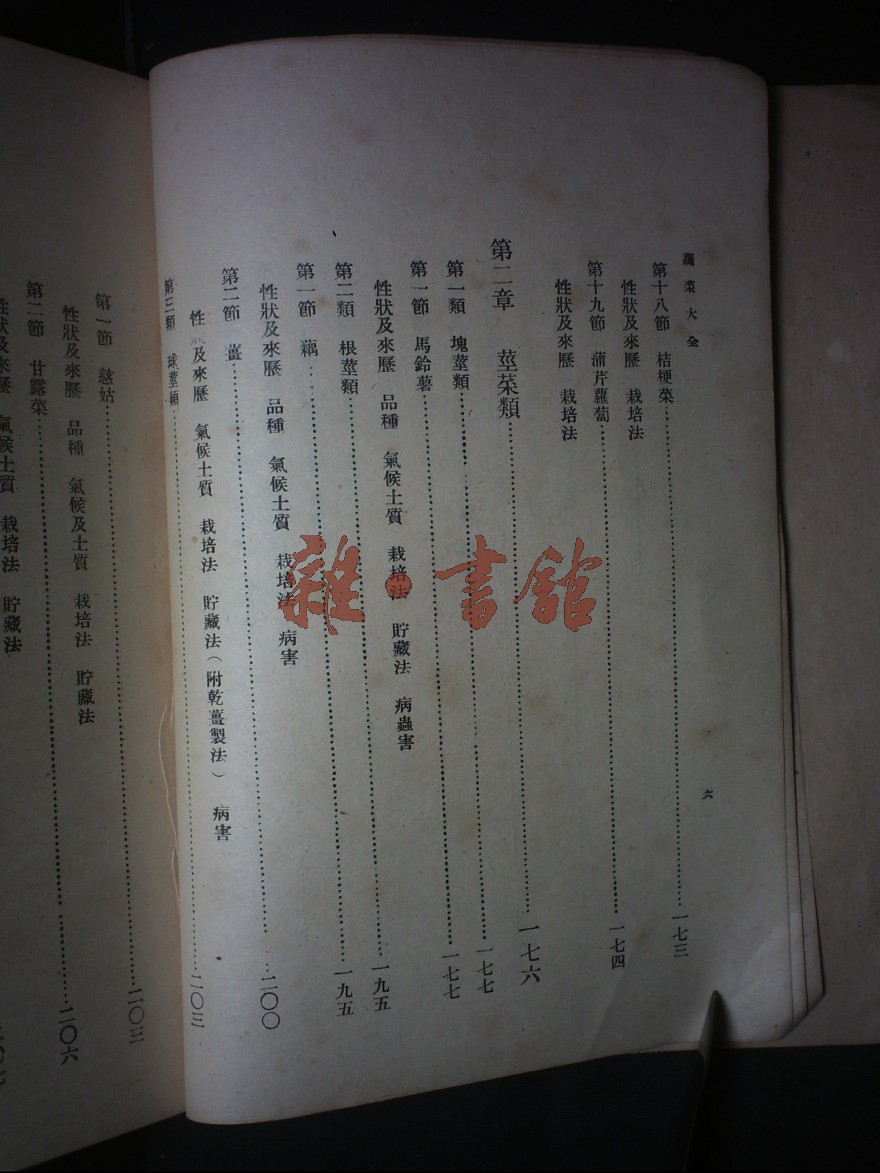 蔬菜大全
六
第十八節 桔梗菜……一七三
性狀及來歷 栽培法
第十九節 蒲芹蘿蔔……一七四
性狀及來歷 栽培法
第二章 莖菜類……一七六
第一類 塊莖類……一七七
第一節 馬鈴薯……一七七
性狀及來歷 品種 氣候土質 栽培法 貯藏法 病蟲害
第二類 根莖類……一九五
第一節 藕……一九五
性狀及來歷 品種 氣候土質 栽培法 病害
第二節 薑……二〇〇
性狀及來歷 氣候土質 栽培法 貯藏法(附乾薑製法) 病害
第三類 球莖類……二〇三
第一節 慈姑……二〇三
性狀及來歷 品種 氣候及土質 栽培法 貯藏法
第二節 甘露菜……二〇六
性狀及來歷 氣候土質 栽培法 貯藏法
雜·書館